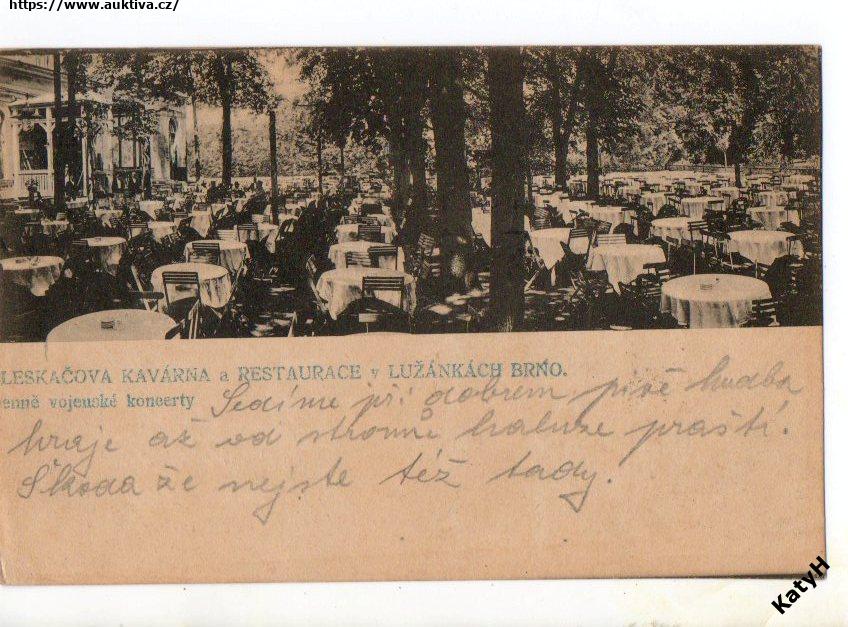 https://www.auktiva.cz/
LESKAČOVA KAVÁRNA a RESTAURACE v LUŽÁNKÁCH BRNO.
enně vojenské koncerty
Sedíme při dobrem pivě hudba
hraje až od stromů haluze praští.
Škoda že nejste též tady.
KatyH